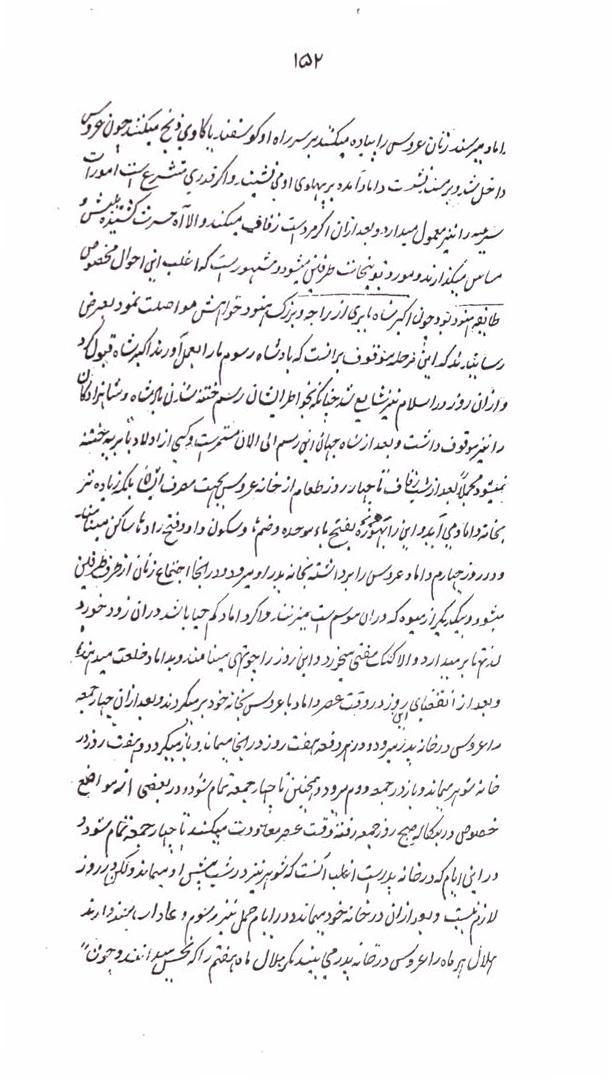 ۱۵۲
داماد میرسند زنان عروس را پیاده میکنند بر سر راه او گوسفند یا گاوی ذبح میکنند چون عروس
داخل شد و بر مسند نشست داماد آمده بر پهلوی او می نشیند و اگر قدری متشرع است امورات
شرعیه را نیز معمول میدارد و بعد از آن اگر مرد است زفاف میکنند و الا آه حسرت کشیده
مساس میگذارند و مورد توبیخات طرفین میشود و مشهور است که اغلب این احوال مخصوص
طایفه هنود بود چون اکبر شاه بابری از راجه بزرگ هنود خواهش مواصلت نمود بعرض
رسانیدند که این مرحله موقوف بر آنست که پادشاه رسوم ما را بعمل آورند اکبر شاه قبول کرد
و از آن روز در اسلام نیز شایع شد چنانکه بخواطر ایشان رسم ختنه شدن پادشاه و شاهزادگان
را نیز موقوف داشت و بعد از شاه جهان این رسم الی الان مستمر است و کسی از اولاد بابریه ختنه
نمیشود مجملاً بعد از شب زفاف تا چهار روز طعام از خانه عروس بجهت مصرف ایشان بلکه زیاده تر
بخانه داماد می آید و این را بهوره بفتح باء موحده و ضم ها و سکون واو و فتح را و ها ساکن مینامند
و در روز چهارم داماد و عروس را برداشته بخانه پدر او میرود و در آنجا اجتماع زنان از طرف طرفین
میشود و بیکدیگر از میوه که در آن موسم است میزنند و اگر داماد کم حیا باشد در آن زد و خورد
لذتها بر میدارد و الا کتک مفتی میخورد و این روز را چوتهی مینامند و بداماد خلعت میدهند
و بعد از انقضای این روز در وقت عصر داماد با عروس بخانه خود بر میگردند و بعد از آن چهار جمعه
را عروس در خانه پدر میرود و در هر دفعه هفت روز در آنجا میماند و باز میگردد و هفت روز در
خانه شوهر میماند و باز در جمعه دوم میرود و همچنین تا چهار جمعه تمام شود و در بعضی از مواضع
خصوص در بنگاله صبح روز جمعه رفته وقت عصر معاودت میکنند تا چهار جمعه تمام شود و
در این ایام که در خانه پدر است اغلب آنست که شوهر نیز در شب پیش او میماند ولکن در روز
لازم نیست و بعد از آن در خانه خود میماند و در ایام حمل نیز رسوم و عادات چند دارند
هلال هر ماه را عروس در خانه پدر می بیند مگر هلال ماه هفتم را که نحس میدانند و چون